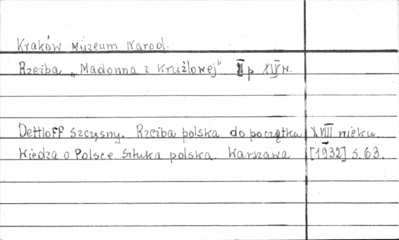 Kraków Muzeum Narod.
Rzeźba „Madonna z Krużlowej" II p XIV w.
Dettloff Szczęsny. Rzeźba polska do początku XVIII wieku.
Wiedza o Polsce. Sztuka polska. Warszawa [1932] s. 63.